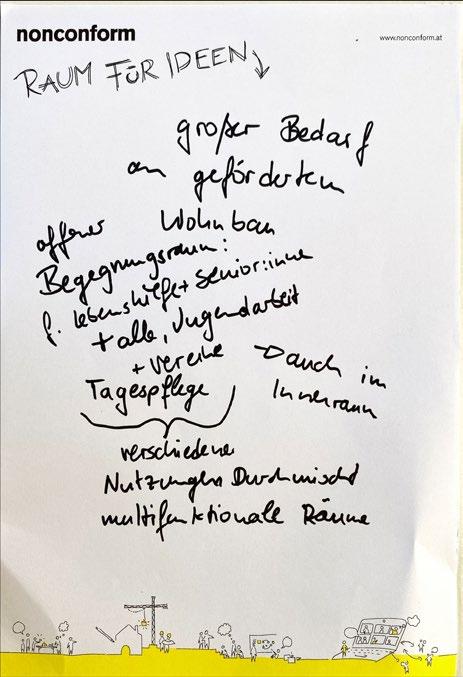 nonconform
www.nonconform.at
RAUM FÜR IDEEN
großer Bedarf
an gefördertem
Wohnbau
offener
Begegnungsraum:
f. lebenshilfe + Senior:inne
+ alle, Jugendarbeit
+ Vereine
→ auch im
Innenraum
Tagespflege
verschiedene
Nutzungen Durchmischt
multifunktionale Räume